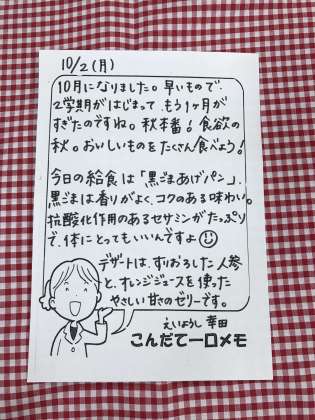 10/2(月)
10月になりました。早いもので、
2学期がはじまって、もう1ヶ月が
すぎたのですね。秋本番！食欲の
秋。おいしいものをたくさん食べよう！
今日の給食は「黒ごまあげパン」。
黒ごまは香りがよく、コクのある味わい。
抗酸化作用のあるセサミンがたっぷり
で、体にとってもいいんですよ
デザートは、すりおろした人参
と、オレンジジュースを使った
やさしい甘さのゼリーです。
えいようし 幸田
こんだて一口メモ